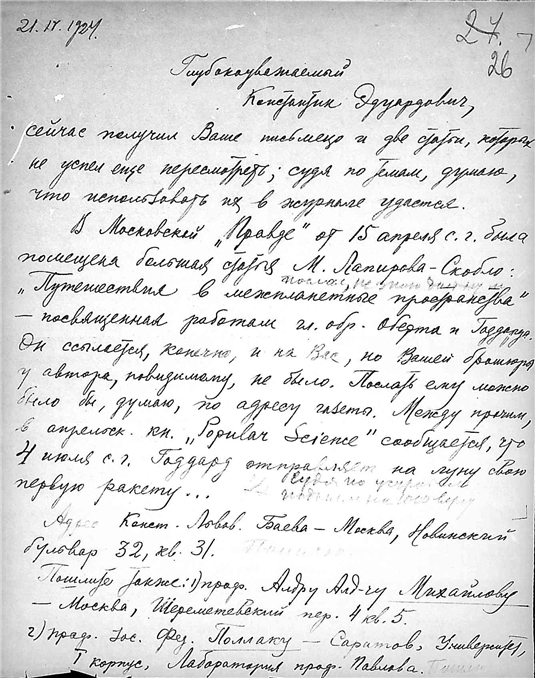 21.IV.1924.
27.
26
Глубокоуважаемый
Константин Эдуардович,
сейчас получил Ваше письмецо и две статьи, которых
не успел еще пересмотреть; судя по темам, думаю,
что использовать их в журнале удастся.
В Московской „Правде" от 15 апреля с.г. была
помещена большая статья М. Лапирова-Скобло:
послал
„Путешествия в межпланетные пространства"
— посвященная работам гл. обр. Оберта и Годдарда.
Он ссылается, конечно, и на Вас, но Вашей брошюры
у автора, повидимому, не было. Послать ему можно
было бы, думаю, по адресу газеты. Между прочим,
в апрельск. кн. „Popular Science" сообщается, что
4 июля с.г. Годдард отправляет на луну свою
первую ракету...
Адрес Конст. Львов. Баева — Москва, Новинский
бульвар 32, кв. 31.
Пошлите также: 1) проф. Алдру Алд-чу Михайлову
— Москва, Шереметевский пер. 4 кв. 5.
2) проф. Иос. Фед. Поллаку — Саратов, Университет,
I корпус, Лаборатория проф. Павлова.